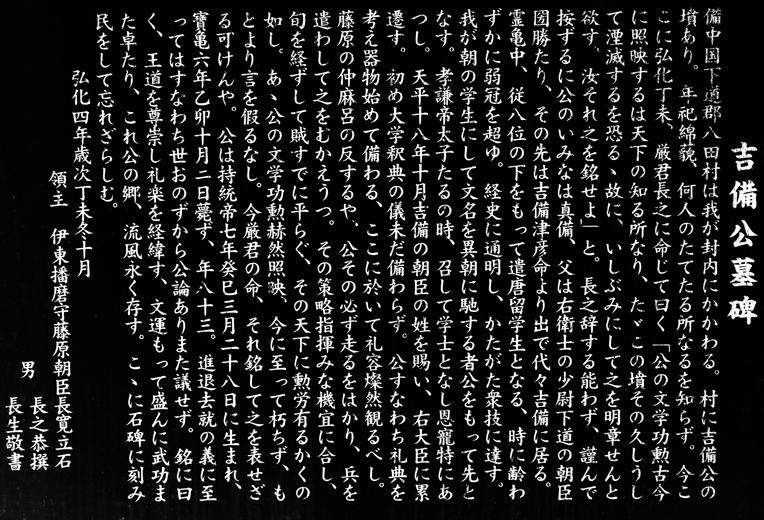 吉備公墓碑
備中国下道郡八田村は我が封内にかかわる。村に吉備公の
墳あり。年祀綿藐、何人のたてたる所なるを知らず。今こ
こに弘化丁未、厳君長之に命じて曰く「公の文学功勲古今
に照映するは天下の知る所なり、たゞこの墳その久しうし
て湮滅するを恐るゝ故に、いしぶみにして之を明章せんと
欲す、汝それ之を銘せよ」と。長之辞する能わず、謹んで
按ずるに公のいみなは真備、父は右衛士の少尉下道の朝臣
圀勝たり、その先は吉備津彦命より出で代々吉備に居る。
霊亀中、従八位の下をもって遣唐留学生となる、時に齢わ
ずかに弱冠を超ゆ。経史に通明し、かたがた衆技に達す。
我が朝の学生にして文名を異朝に馳する者公をもって先と
なす。孝謙帝太子たるの時、召して学士となし恩寵特にあ
つし。天平十八年十月吉備の朝臣の姓を賜い、右大臣に累
遷す。初め大学釈典の儀未だ備わらず。公すなわち礼典を
考え器物始めて備わる、ここに於いて礼容燦然観るべし。
藤原の仲麻呂の反するや、公その必ず走るをはかり、兵を
遣わして之をむかえうつ。その策略指揮みな機宜に合し、
旬を経ずして賊すでに平らぐ、その天下に勲労有るかくの
如し。あゝ公の文学功勲赫然照映、今に至って朽ちず、も
とより言を假るなし。今厳君の命、それ銘して之を表せざ
る可けんや。公は持統帝七年癸巳三月二十八日に生まれ、
寶亀六年乙卯十月二日薨ず、年八十三。進退去就の義に至
ってはすなわち世おのずから公論ありまた議せず。銘に曰
く、王道を尊崇し礼楽を経緯す、文運もって盛んに武功ま
た卓たり、これ公の郷、流風永く存す。こゝに石碑に刻み
民をして忘れざらしむ。
弘化四年歳次丁未冬十月
領主 伊東播磨守藤原朝臣長寛立石
男 長之恭撰
長生敬書